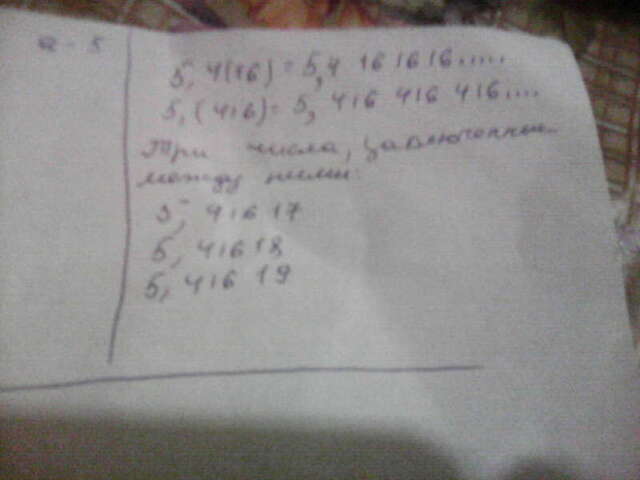 5, 4(16) = 5,4 16 16 16.....
5, (416) = 5, 416 416 416....
Три числа, заключенные
между ними:
5, 416 17
5, 416 18
5, 416 19